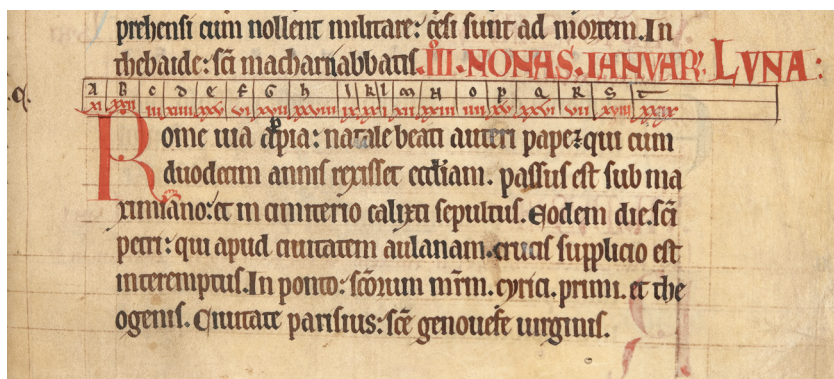 prehensi cum nollent militare: cesi sunt ad mortem. In
thebaide: sci macharii abbatis. III. NONAS. IANUAR. LUNA:
A B c d e f G h I k l m N o p Q R S t
xi xxii iii xiiii xxv vi xvii xxviii ix xx i xii xxiii iiii xv xxvi vii xviii xxix
Rome uia appia: natale beati auteri pape: qui cum
duodecim annis rexisset eccliam. passus est sub ma
ximiano: et in cimiterio calixti sepultus. Eodem die. sci
petri: qui apud ciuitatem aulanam. crucis supplicio est
interemptus. In ponto: scorum mrm. cyrici. primi. et the
ogenis. Ciuitate parisius: sce genouefe uirginis.